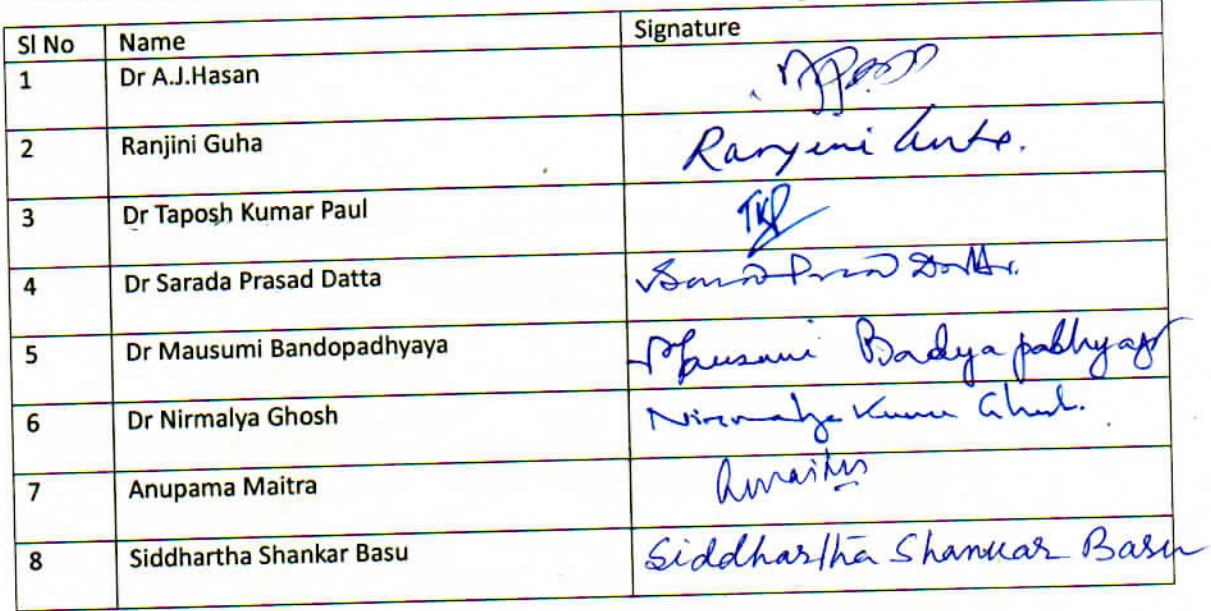 Sl No Name Signature
1 Dr A.J.Hasan
2 Ranjini Guha Ranjini Guha.
3 Dr Taposh Kumar Paul TKP
4 Dr Sarada Prasad Datta
5 Dr Mausumi Bandopadhyaya Mausumi Badyapadhyay
6 Dr Nirmalya Ghosh Nirmalya Kumar Ghosh.
7 Anupama Maitra AMaitra
8 Siddhartha Shankar Basu Siddhartha Shankar Basu